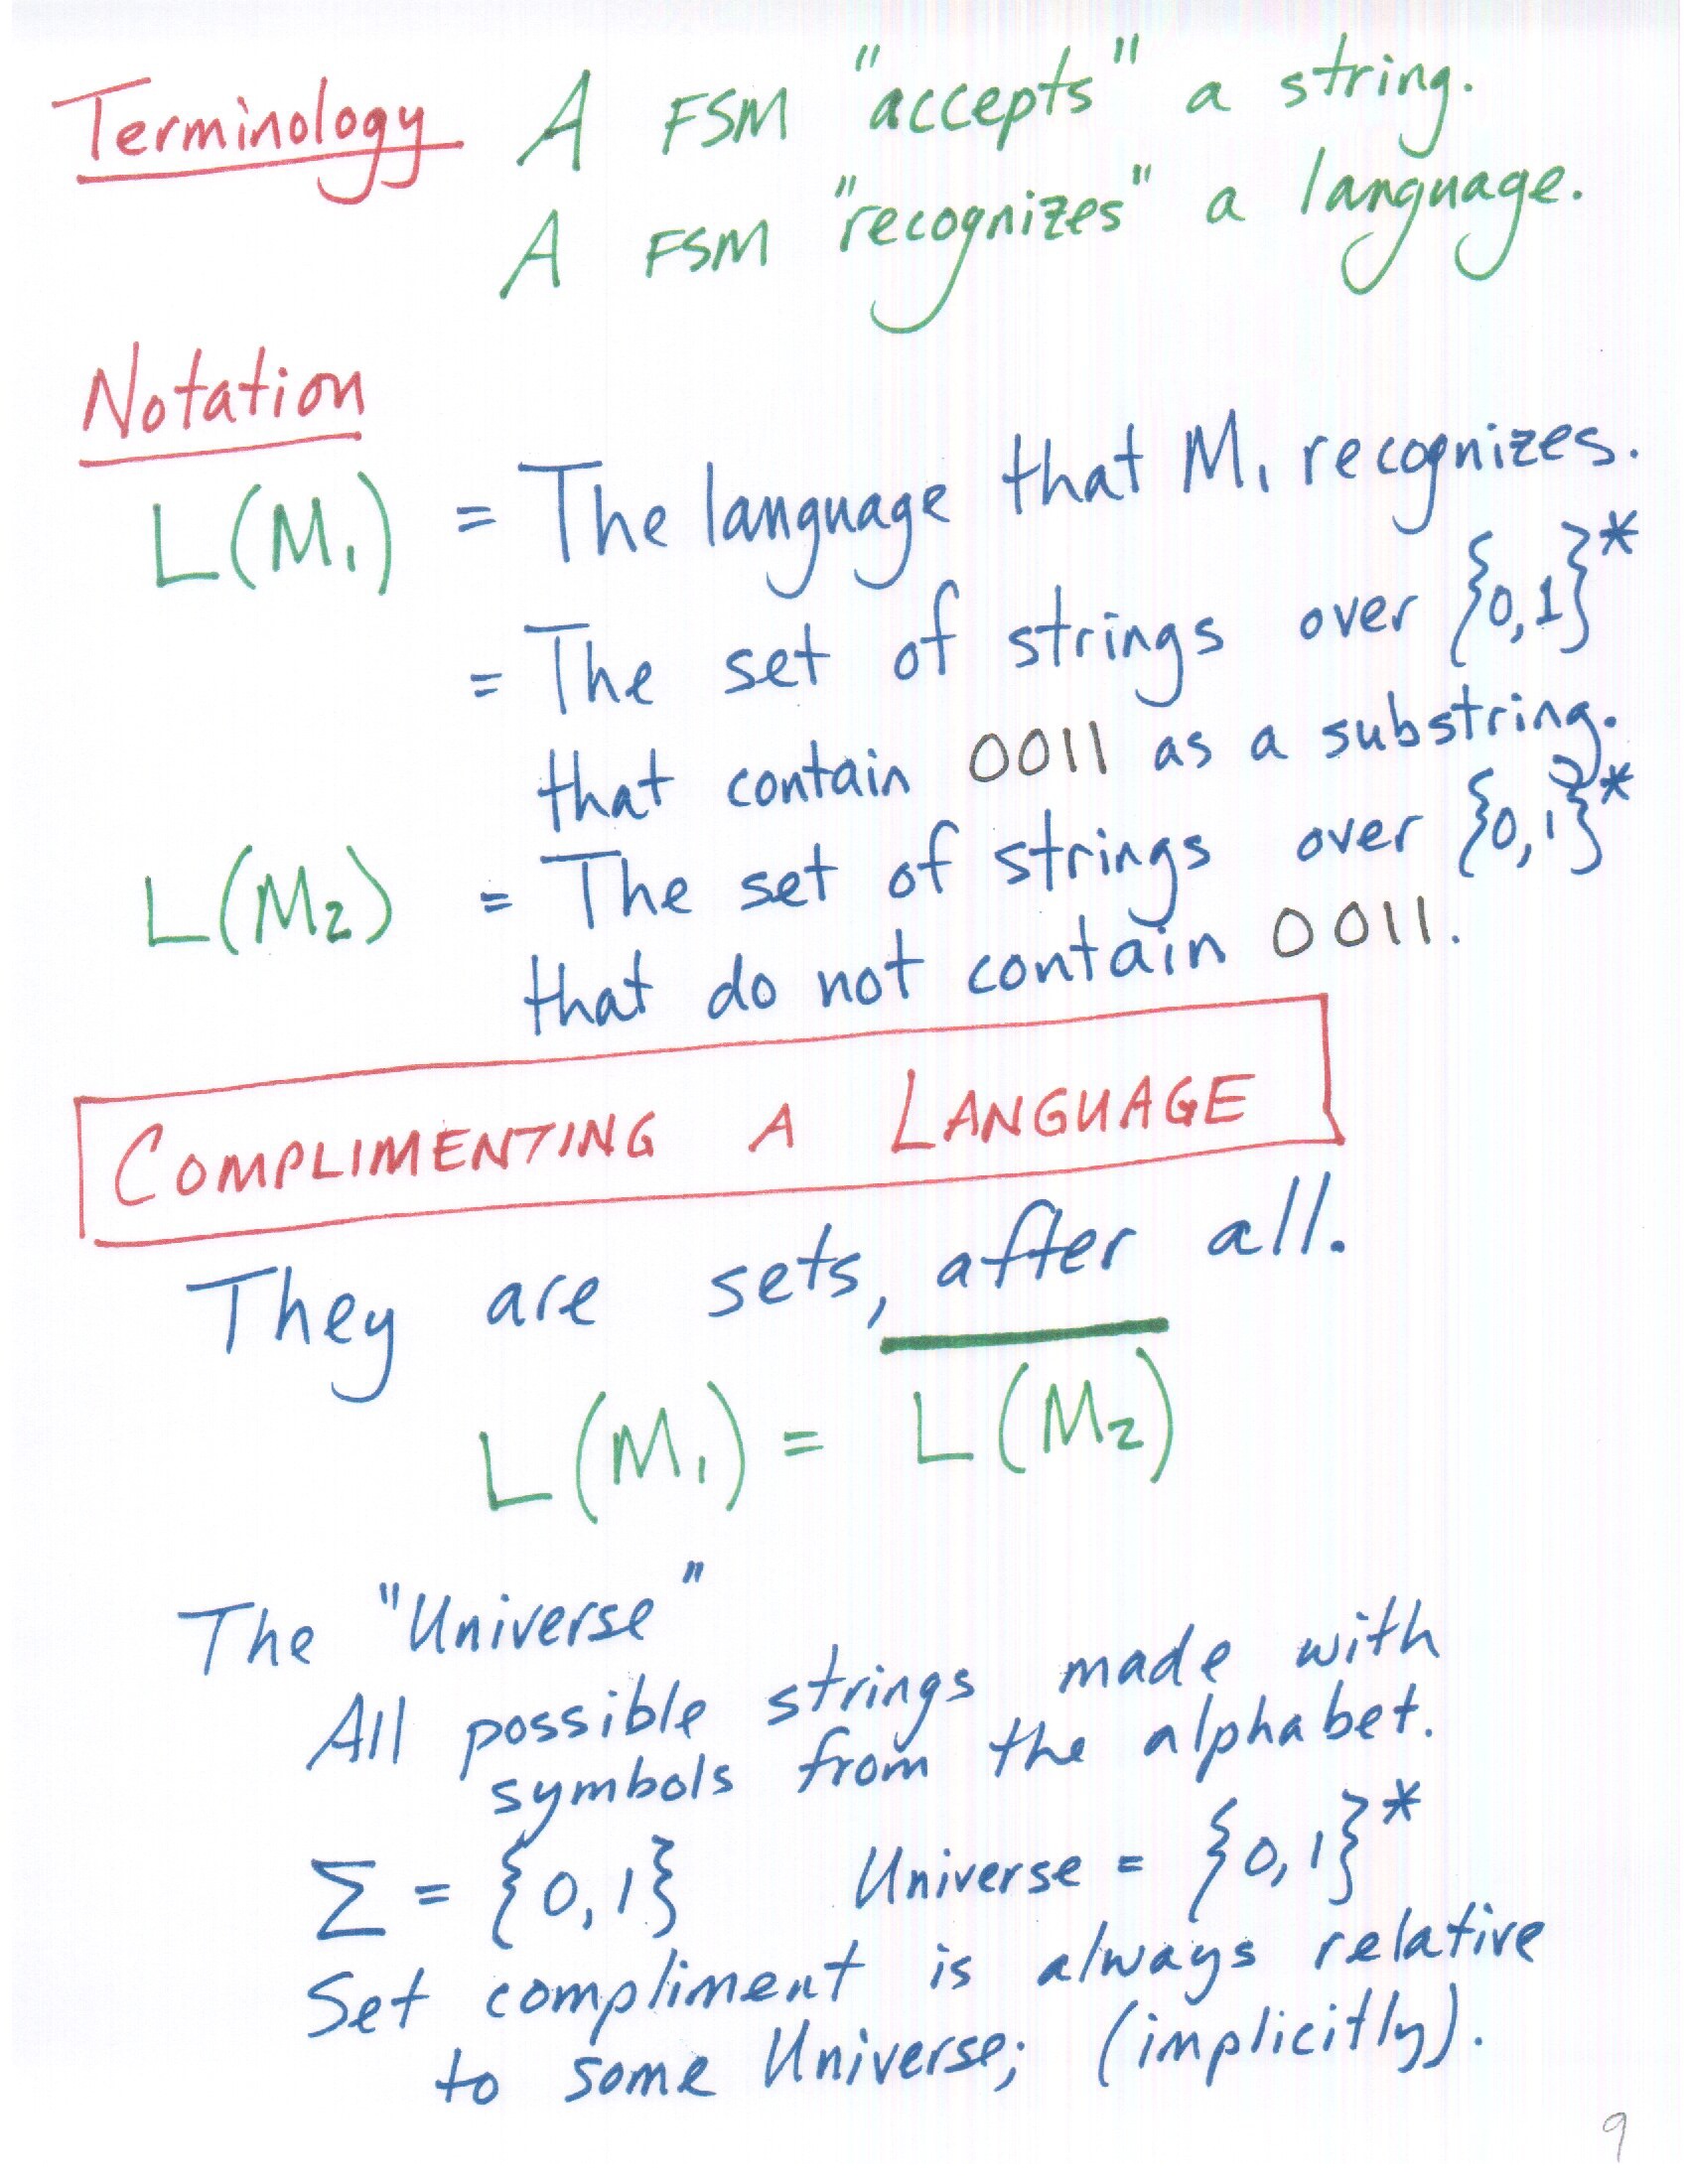 Terminology A FSM "accepts" a string.
A FSM "recognizes" a language.
Notation
L(M₁) = The language that M₁ recognizes.
= The set of strings over {0,1}*
that contain 0011 as a substring.
L(M₂) = The set of strings over {0,1}*
that do not contain 0011.
COMPLIMENTING A LANGUAGE
They are sets, after all.
L(M₁) = L̅(̅M̅₂̅)̅
The "Universe"
All possible strings made with
symbols from the alphabet.
Σ = {0,1} Universe = {0,1}*
Set compliment is always relative
to some Universe; (implicitly).
9